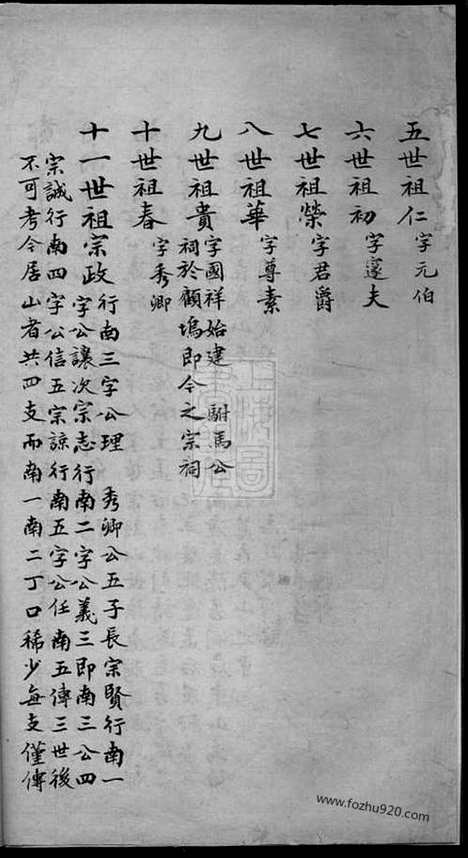 五世祖仁 字元伯
六世祖初 字遂夫
七世祖榮 字君爵
八世祖華 字尊素
九世祖貴 字國祥始建 駙馬公
祠於顧塢即今之宗祠
十世祖春 字秀卿
十一世祖宗政 行南三字公理 秀卿公五子長宗賢行南一
字公讓次宗志行南二字公義三即南三公四
宗誠行南四字公信五宗諒行南五字公任南五傳三世後
不可考今居山者共四支而南一南二丁口稀少每支僅傳
www.fozhu920.com